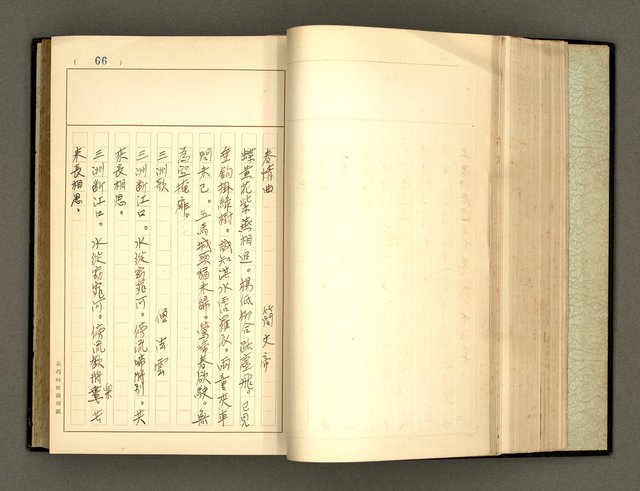 ( 66 )
春情曲 簡文帝
蝶黃花紫燕相追。楊低柳合路塵飛。已見
垂鉤掛綠樹。誠知淇水沾羅衣。兩童夾車
問不已。五馬城頭猶未歸。鶯啼春欲駛。無
為空掩扉。
三洲歌 僧法雲
三洲斷江口。水從窈窕河。傍流啼將別。共
來長相思。
三洲斷江口。水從窈窕河。傍流歡將樂。共
來長相思。
黃得時原稿用紙